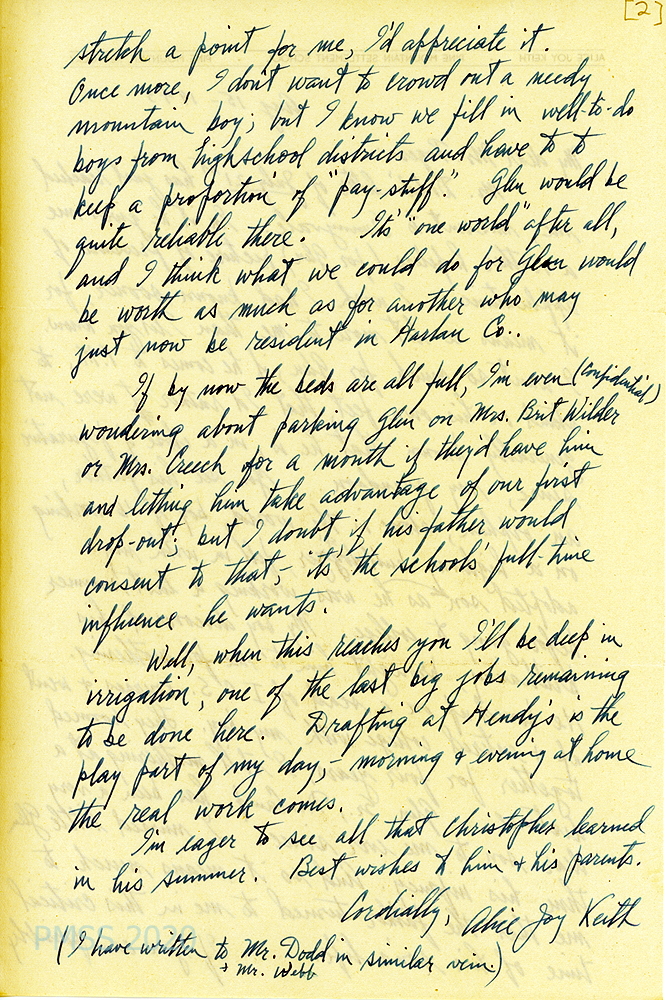 [2]
stretch a point for me, I'd appreciate it.
Once more, I don't want to crowd out a needy
mountain boy; but I know we fill in well-to-do
boys from highschool districts and have to to
keep a proportion of "pay-stuff." Glen would be
quite reliable there. It's "one world" after all,
and I think what we could do for Glen would
be worth as much as for another who may
just now be resident in Harlan Co..
If by now the beds are all full, I'm even (confidential)
wondering about parking Glen on Mrs. Brit Wilder
or Mrs. Creech for a month if they'd have him
and letting him take advantage of our first
drop-out; but I doubt if his father would
consent to that,- it's the schools' full-time
influence he wants.
Well, when this reaches you I'll be deep in
irrigation, one of the last big jobs remaining
to be done here. Drafting at Hendy's is the
play part of my day,- morning & evening at home
the real work comes.
I'm eager to see all that Christopher learned
in his summer. Best wishes to him & his parents.
Cordially, Alice Joy Keith
(I have written to Mr. Dodd in similar vein.)
+ Mr. Webb
PMSS 2020